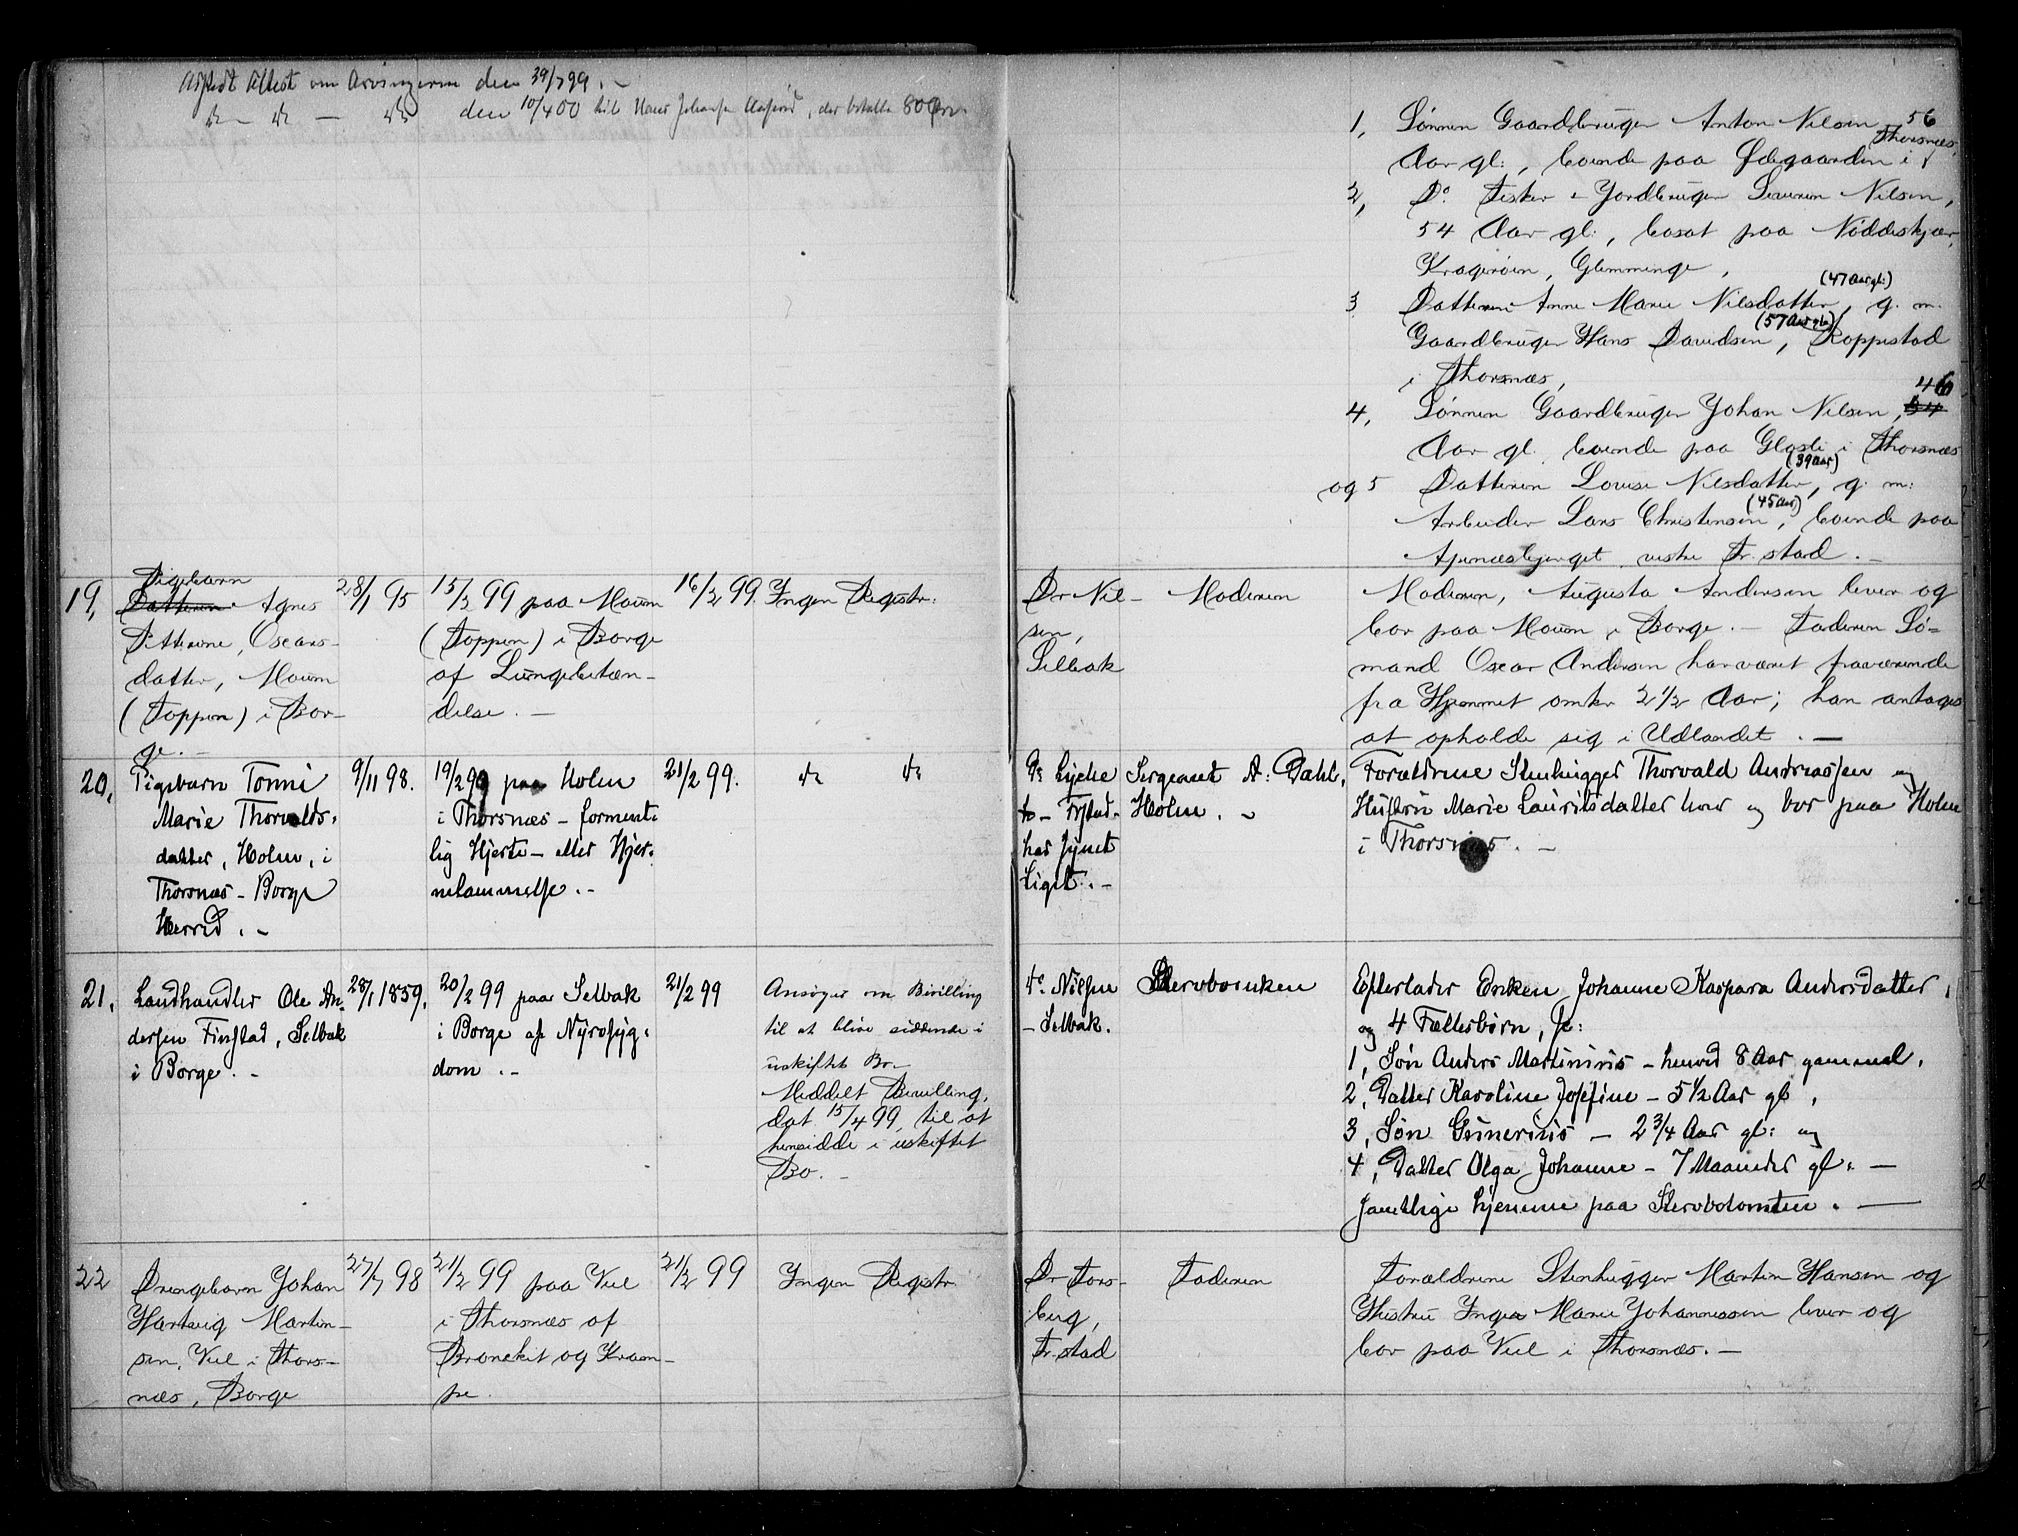 Attest om Arvingerne den 29/7 99. -
do do - do den 10/4 00 til Hans Johansen, der betalte 80 Øre
1, Sønnen Gaardbruger Anton Nilsen, 56
Aar gl:, boende paa Ødegaarden i Thorsnæs,
2, Do. Fisker - Jordbruger Severin Nilsen,
54 Aar gl:, bosat paa Nøddeskjær,
Kragerøen, Glemminge,
3 Datteren Anne Marie Nilsdatter, (47 Aar gl:) g. m.
Gaardbruger Hans Davidsen, (57 Aar gl:) Roppestad
i Thorsnæs,
4, Sønnen Gaardbruger Johan Nilsen, 54 46
Aar gl. boende paa Glosli i Thorsnæs
og 5 Datteren Lovise Nilsdatter, (39 Aar) g. m:
Arbeider Lars Christensen, (45 Aar) boende paa
vestre Fr.stad. -
19, Pigebarn
Datteren Agnes
Petterine, Oscars-
datter, Moum
(Toppen) i Bor-
ge. -
28/1 95
15/2 99 paa Moum
(Toppen) i Borge
af Lungebetæn-
delse. -
16/2 99. Ingen Registr:
Dr Niel-
sen,
Selbak
Moderen
Moderen, Augusta Andersen lever og
bor paa Moum i Borge. - Faderen Sø-
mand Oscar Andersen har været fraværende
fra Hjemmet omkr 2 1/2 Aar; han antages
at opholde sig i Udlandet. -
20, Pigebarn Tonni
Marie Thorvalds-
datter, Holm, i
Thorsnæs - Borge
Herred. -
9/11 98.
19/2 99 paa Holm
i Thorsnæs - forment-
lig Hjerte- eller Hjer-
nelammelse. -
21/2 99.
do do
Dr. Lycke
to - Frstad.
har synet
Liget. -
Sergeant A: Dahl,
Holm. -
Forældrene Stenhugger Thorvald Andreassen og
Hustru Marie Lauritsdatter lever og bor paa Holm
i Thorsnæs. -
21, Landhandler Ole An-
dersen Finstad, Selbak
i Borge. -
28/1 1859.
20/2 99 paa Selbak
i Borge af Nyresyg-
dom. -
21/2 99
Ansøger om Bevilling
til at blive siddende i
uskiftet Bo.
Meddelt Bevilling,
dat 15/4 99, til at
hensidde i uskiftet
Bo. -
Dr. Nilsen
- Selbak.
Stervboenken
Efterlader Enken Johanne Kaspara Andersdatter,
og 4 Fællesbørn, se:
1, Søn Anders Martinius - henved 8 Aar gammel,
2, Datter Karoline Josefine - 5 1/2 Aar gl,
3, Søn Gunerius - 2 3/4 Aar gl: og
4, Datter Olga Johanne - 7 Maaneder gl. -
samtlige hjemme paa Stervbotomten. -
22 Drengebarn Johan
Hartvig Martin-
sen, Viel i Thors-
næs, Borge
27/7 98
21/2 99 paa Viel
i Thorsnæs af
Bronchit og Kram-
pe.
21/2 99
Ingen Registr
Dr Tors-
berg,
Fr.stad
Faderen
Forældrene Stenhugger Martin Hansen og
Hustru Inga Marie Johannessen lever og
bor paa Viel i Thorsnæs. -